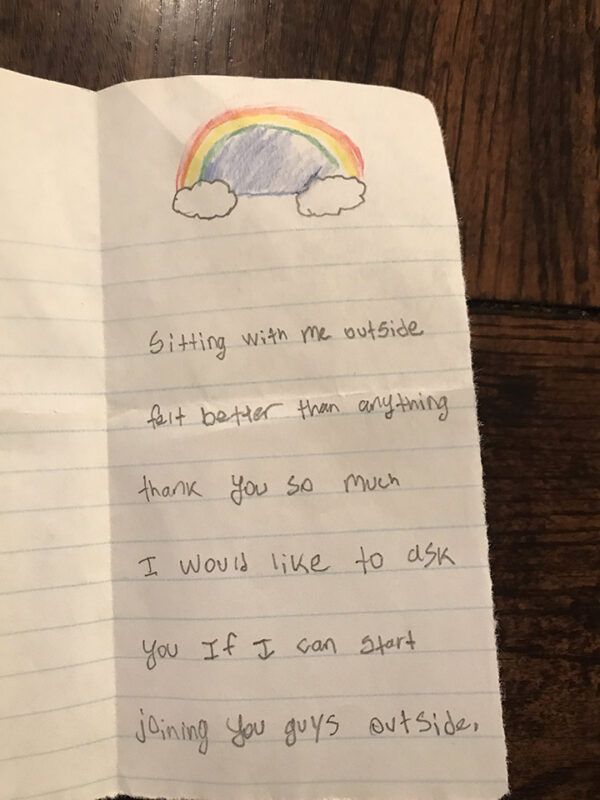 Sitting with me outside
felt better than anything
thank you so much
I would like to ask
you If I can start
joining you guys outside.